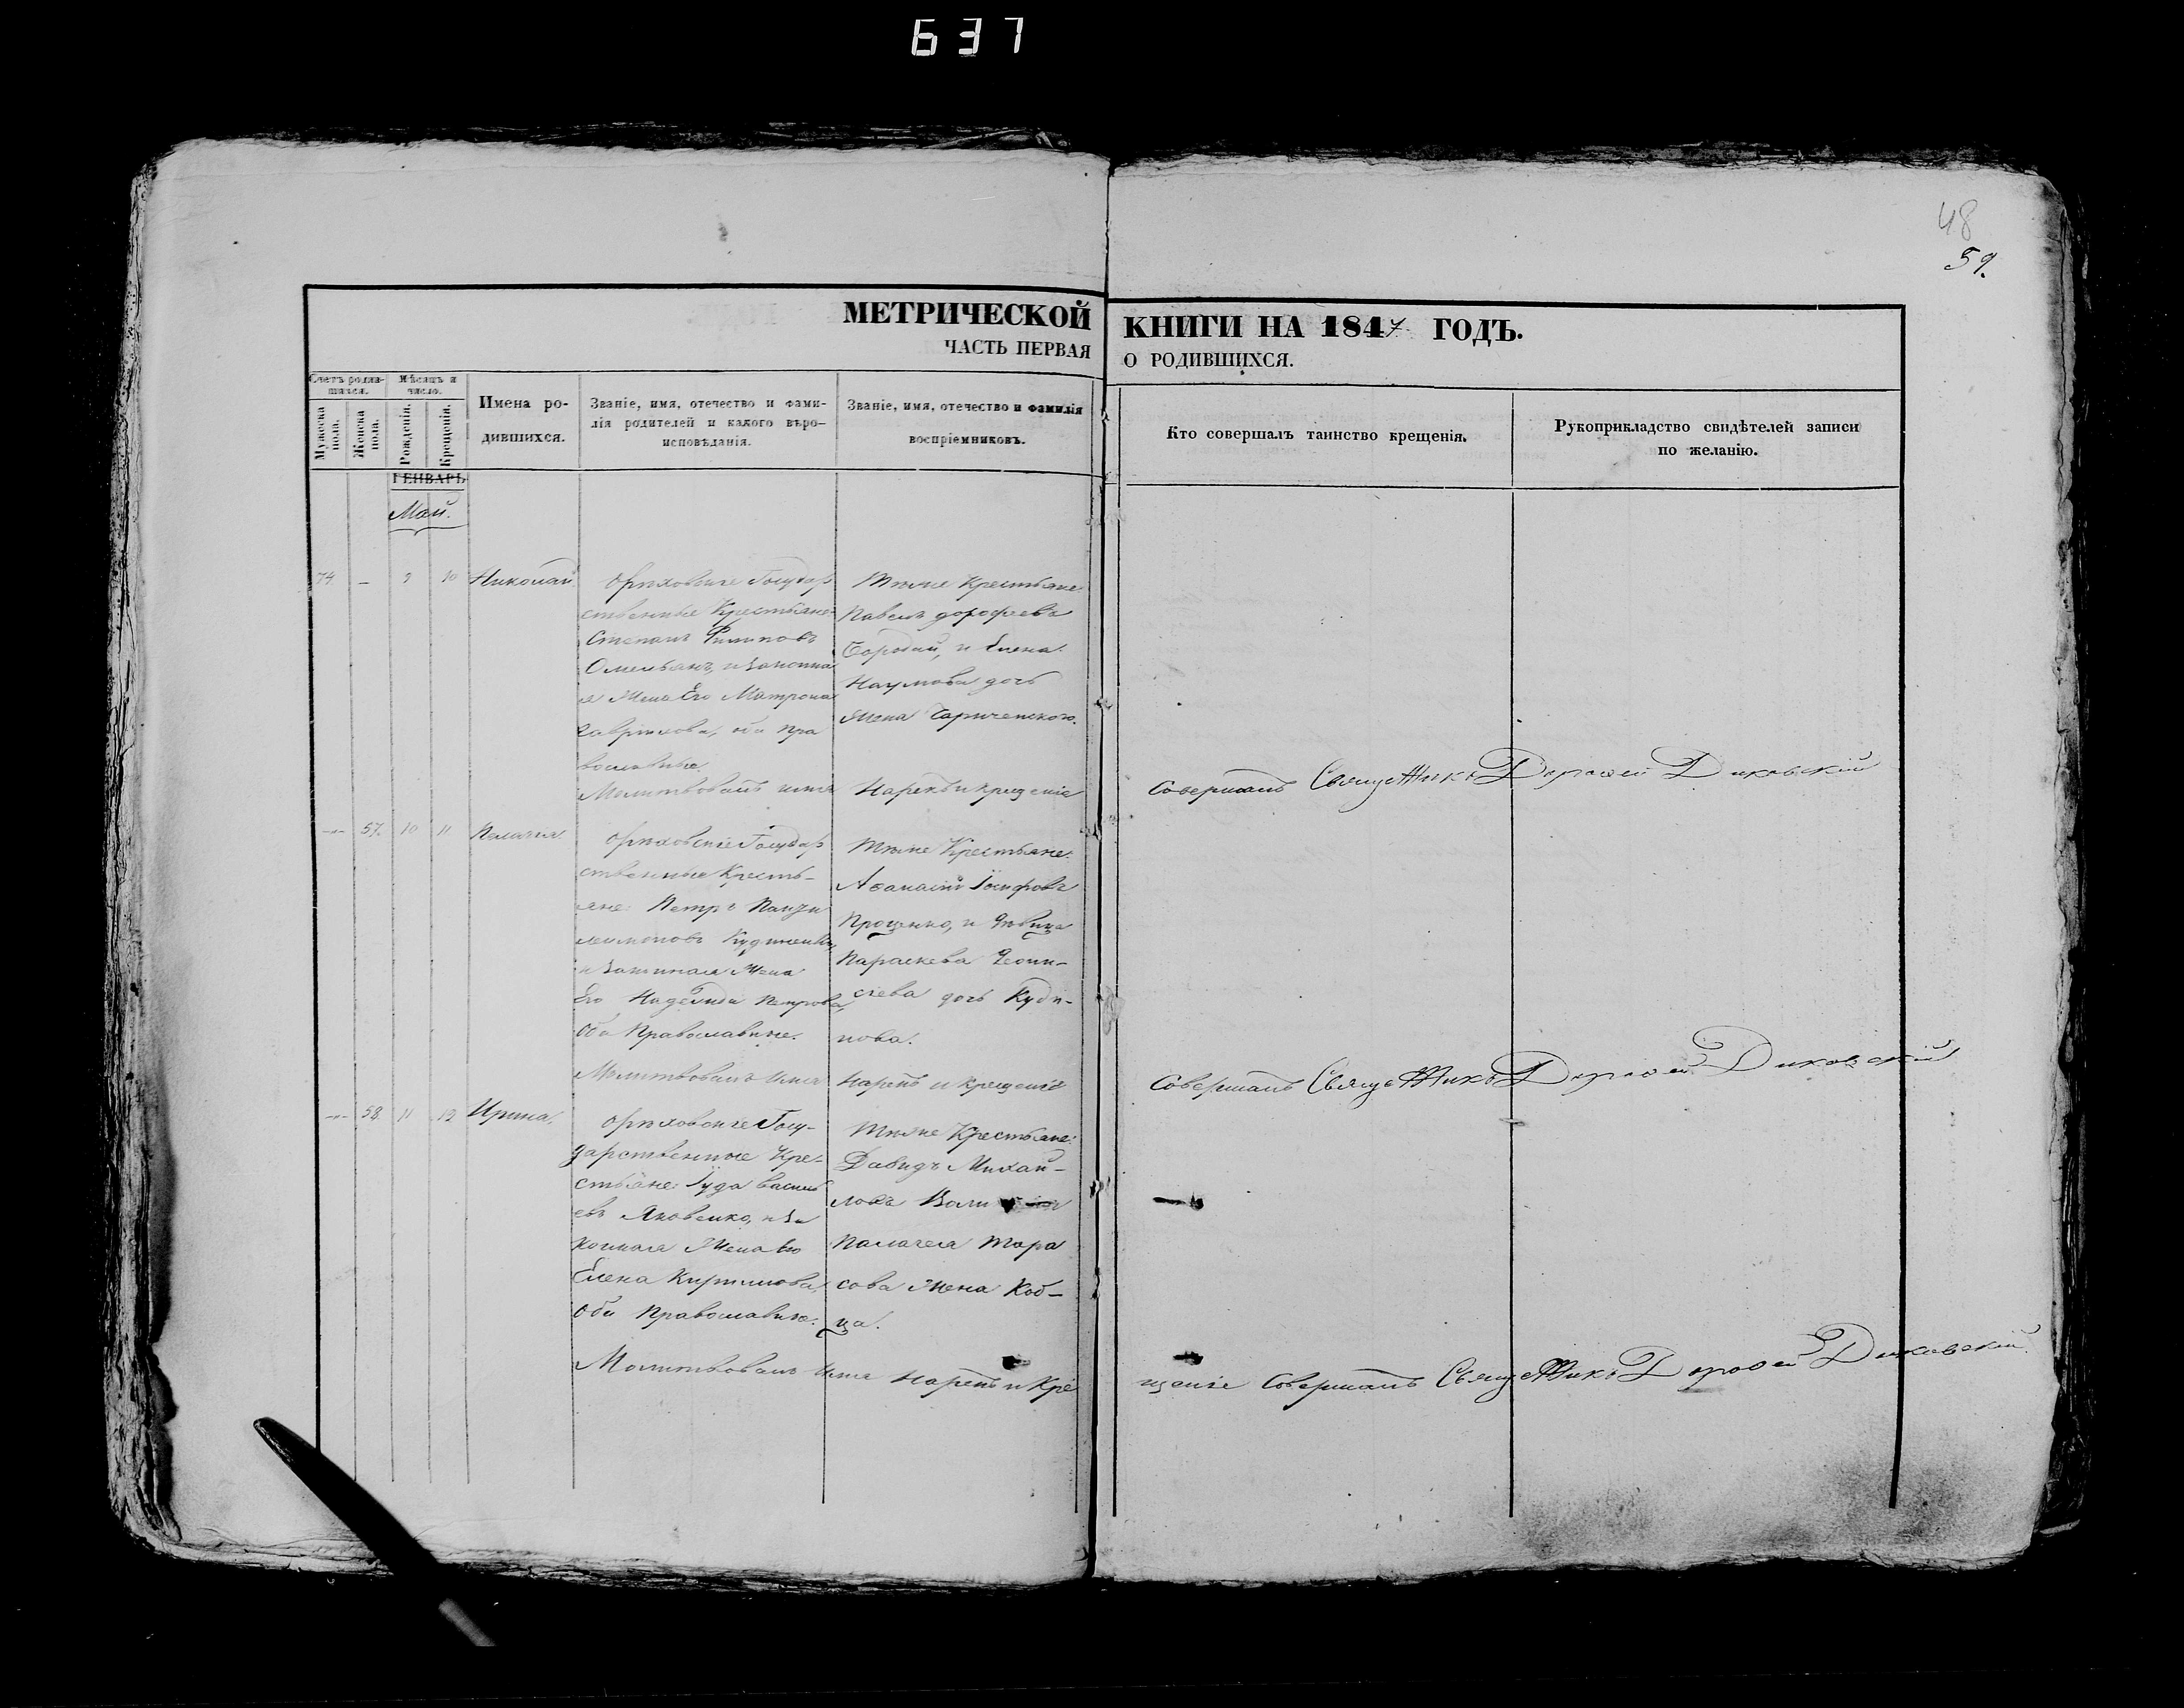 637
48
59.
МЕТРИЧЕСКОЙ КНИГИ НА 1847 ГОДЪ.
ЧАСТЬ ПЕРВАЯ О РОДИВШИХСЯ.
Счетъ родив-
шихся.
Мужеска пола.
Женска пола.
Мѣсяцъ и
число.
Рожденія.
Крещенія.
Имена ро-
дившихся.
Званіе, имя, отечество и фами-
лія родителей и какого вѣро-
исповѣданія.
Званіе, имя, отечество и фамилія
воспріемниковъ.
Кто совершалъ таинство крещенія.
Рукоприкладство свидѣтелей записи
по желанію.
ГЕНВАРЬ
Май.
74. — 9 10 Николай
Орѣховскіе Государ
ственные Крестьяне:
Степанъ Филиповъ
Омельянъ, и законна
я Жена Его Матрона
Гаврилова, оба пра
вославные.
Тѣже Крестьяне:
Павелъ дорофеевъ
Бородай, и Елена
Наумова дочь
Жена
Молитвовалъ имя Нарекъ и крещеніе Совершалъ Священникъ Дорофей Диковскій
57. 10 11 Пелагия.
Орѣховскіе Государ
ственные Кресть-
яне: Петръ
и Законная Жена
Его Надежда Петрова,
Оба Православные.
Тѣже Крестьяне:
Афанасій Іосифовъ
Проценко, и дѣвица
Параскева Леони-
сіева дочь Куди-
нова.
Молитвовалъ Имя Нарекъ и крещеніе Совершалъ Священникъ Дорофей Диковскій
58 11 Ирина,
Орѣховскіе Госу-
дарственные Кре-
стьяне: Іуда василь
евъ Яковенко, и За
конная Жена Его
Елена Кирилова,
Оба Православные.
Тѣже Крестьяне:
Давидъ Михай-
ловъ
Палагея Тара
сова Жена Коб-
ца.
Молитвовалъ Имя Нарекъ и Кре
щеніе Совершалъ Священникъ Дорофей Диковскій.